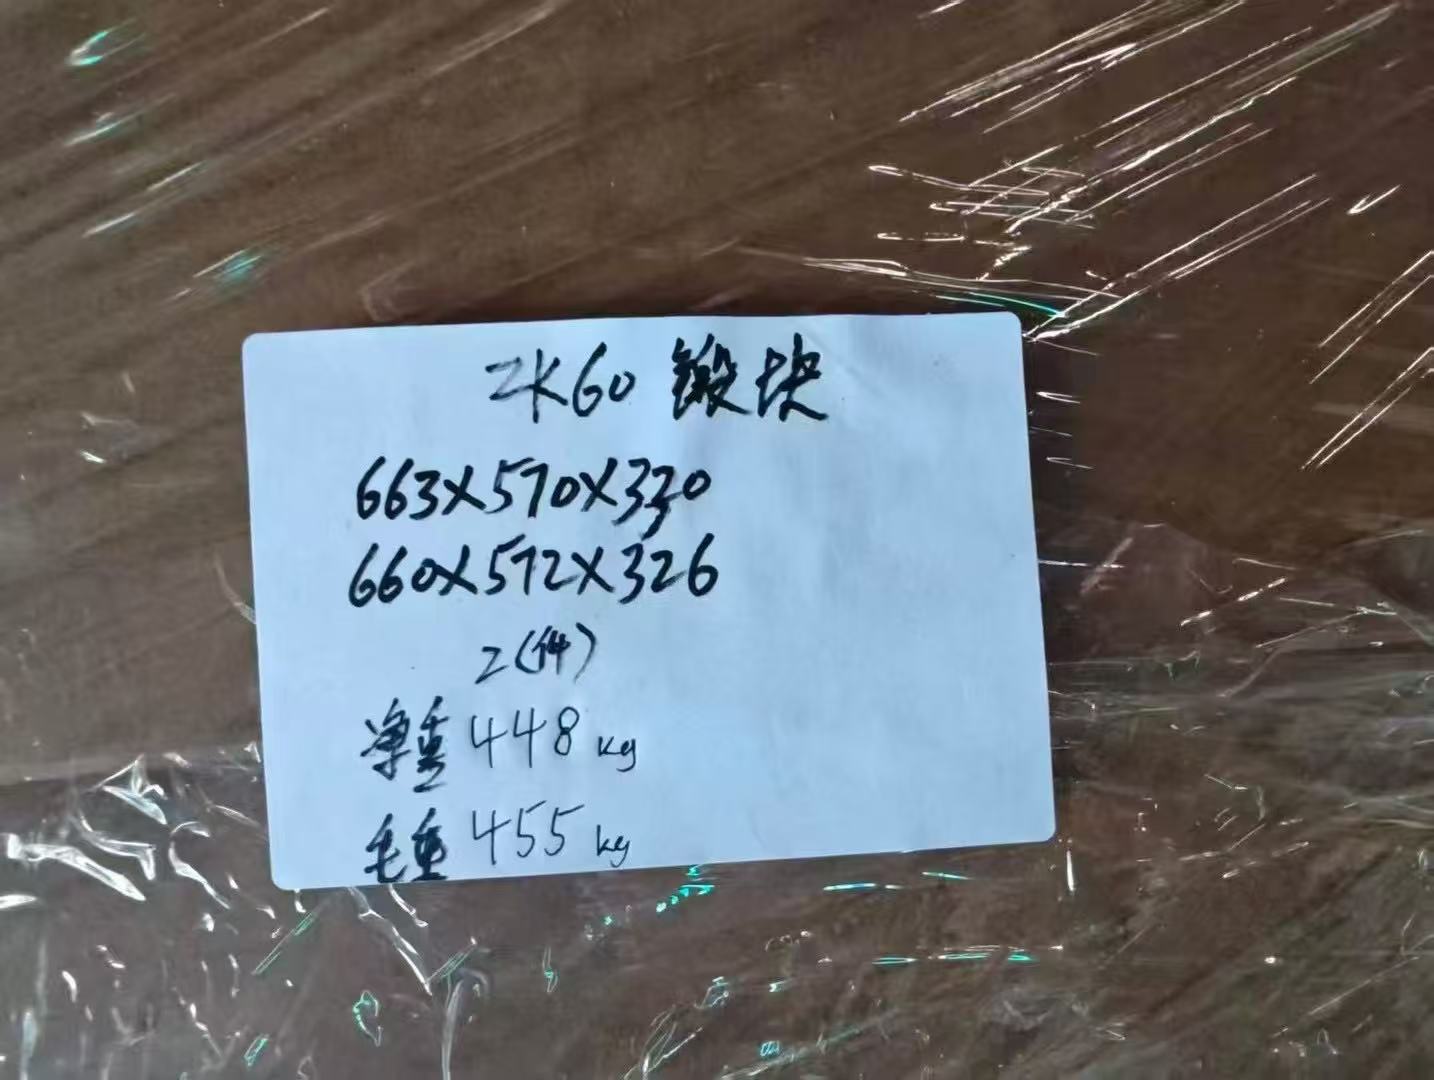 ZK60 锻块
663X570X330
660X572X326
2(件)
净重 448 kg
毛重 455 kg